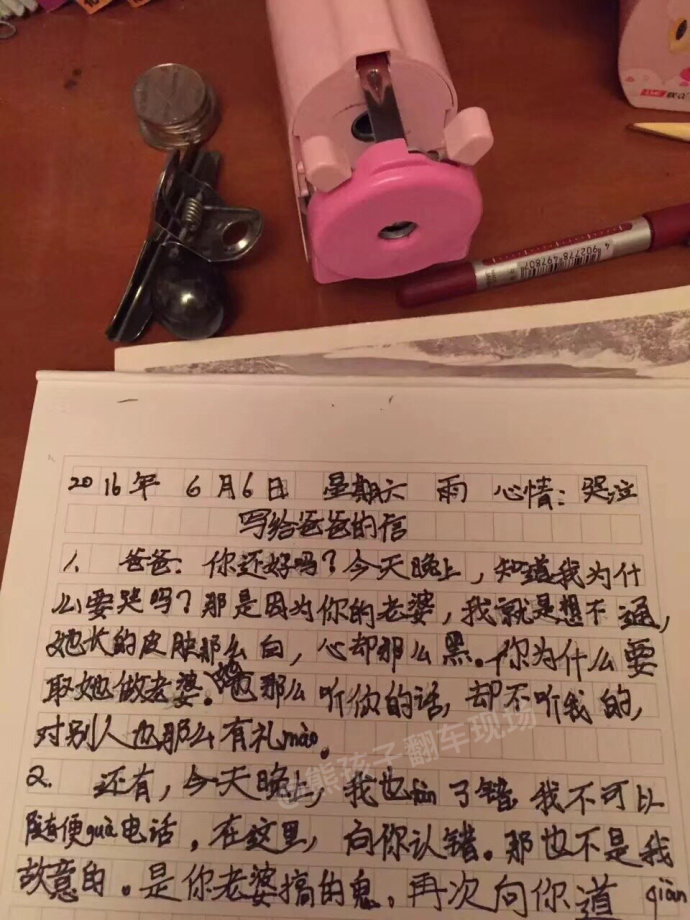 4 902778 497807
2016年 6月6日 星期六 雨 心情：哭泣
写给爸爸的信
1. 爸爸：你还好吗？今天晚上，知道我为什
么要哭吗？那是因为你的老婆，我就是想不通，
她长的皮肤那么白，心却那么黑。你为什么要
取她做老婆。她也那么听你的话，却不听我的，
对别人也那么有礼mào。
2. 还有，今天晚上，我也fàn了错，我不可以
随便guà电话，在这里，向你认错。那也不是我
故意的。是你老婆搞的鬼，再次向你道qiàn
@熊孩子翻车现场